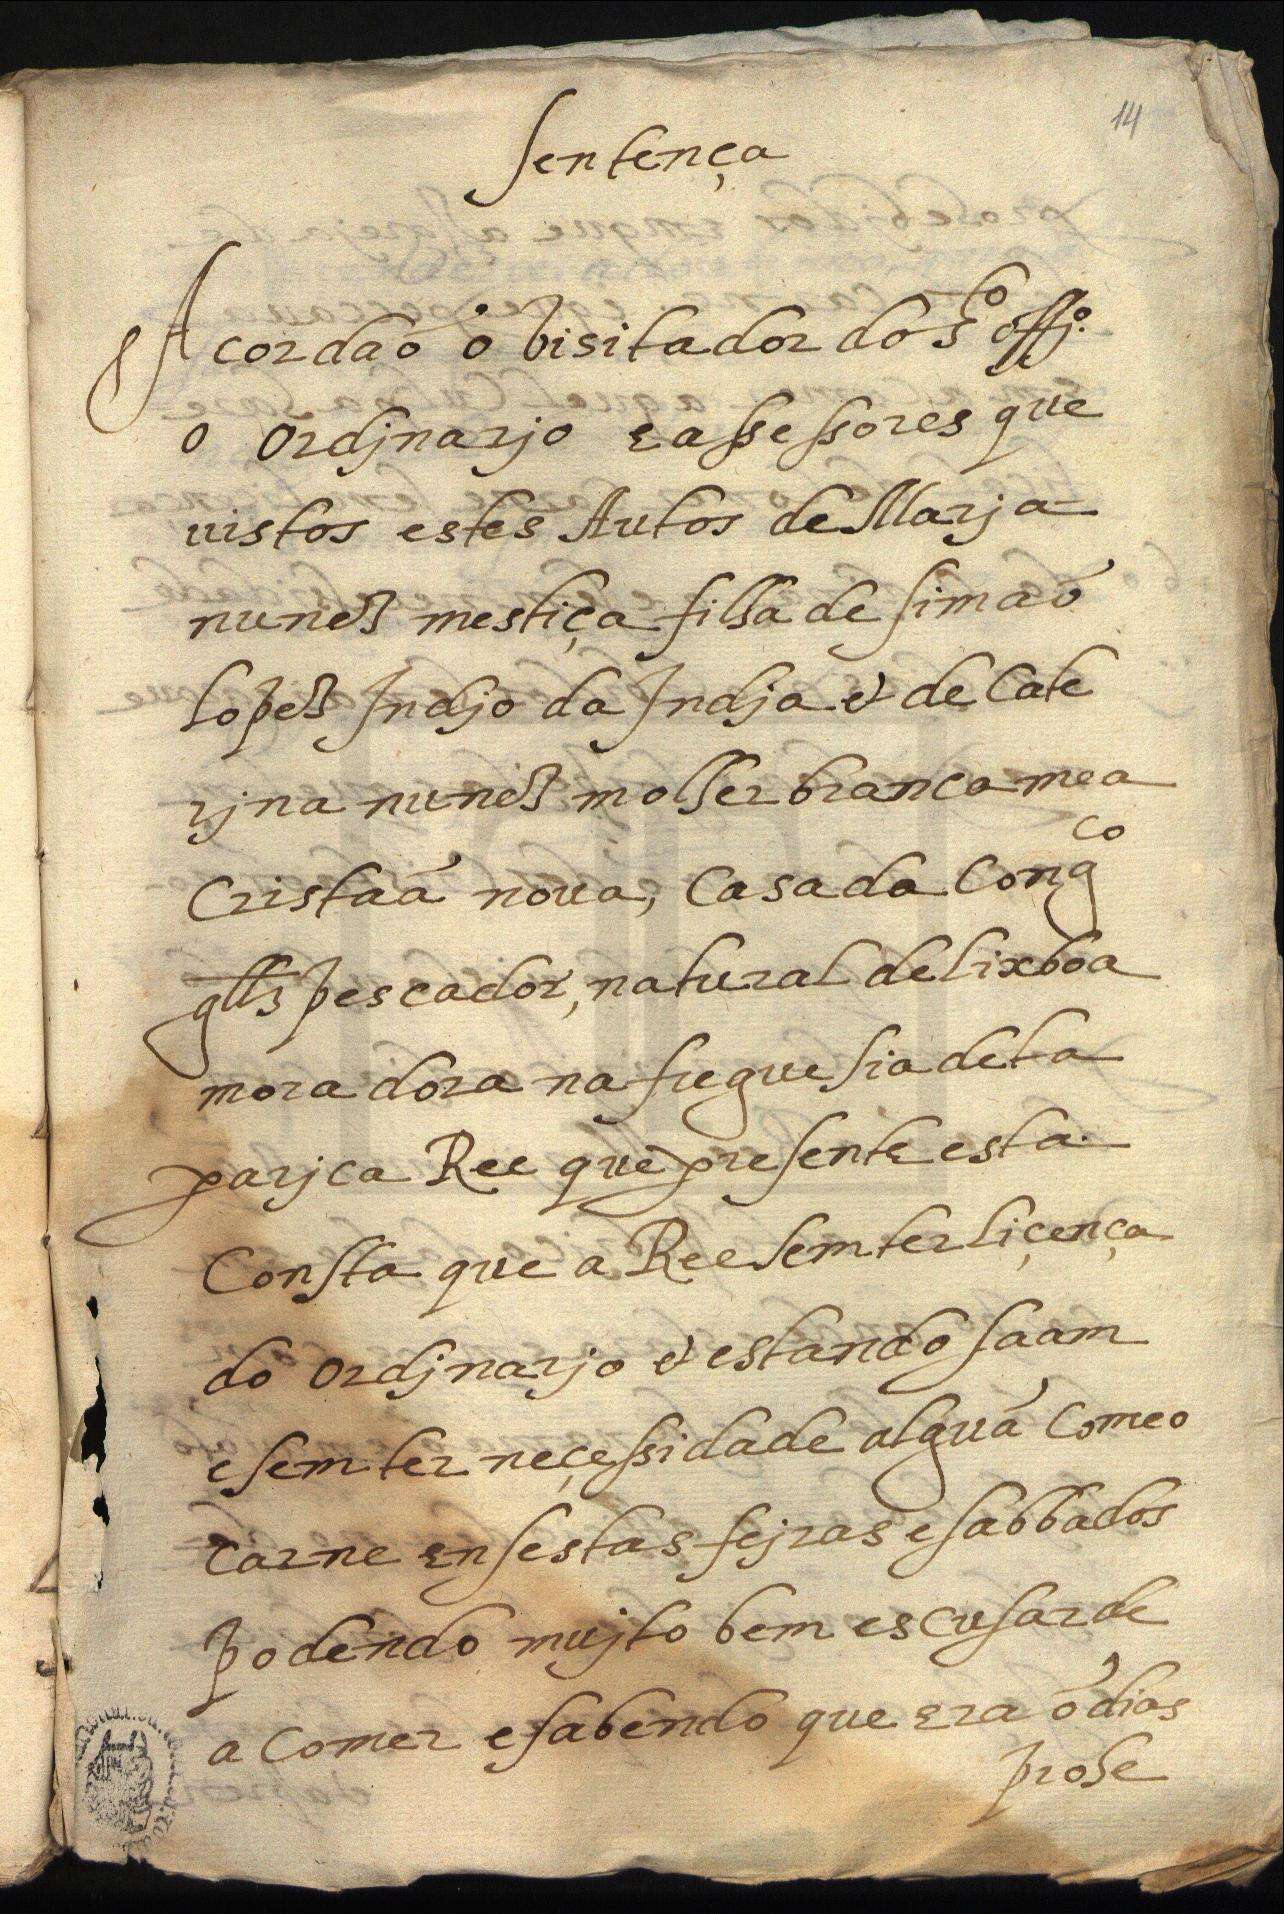 14
Sentença
Acordão o bisitador do S.to off.o
o ordjnarjo e assessores que
uistos estes Autos de Marja
nunez mestiça filha de simaõ
lopez Indjo da Indja e de Cate
rjna nunez molher branca mea
Cristaã noua, Casada Con g.co
glz pescador, natural de lixboa
moradora na freguesia de ta
parjca Ree que presente esta.
Consta que a Ree sem ter liçença
do ordjnarjo e estando saam
e sem ter neçessidade alguã Comeo
carne en sestas fejras e sabbados
podendo mujto bem escusar de
a Comer e sabendo que eraõ dias
prohe